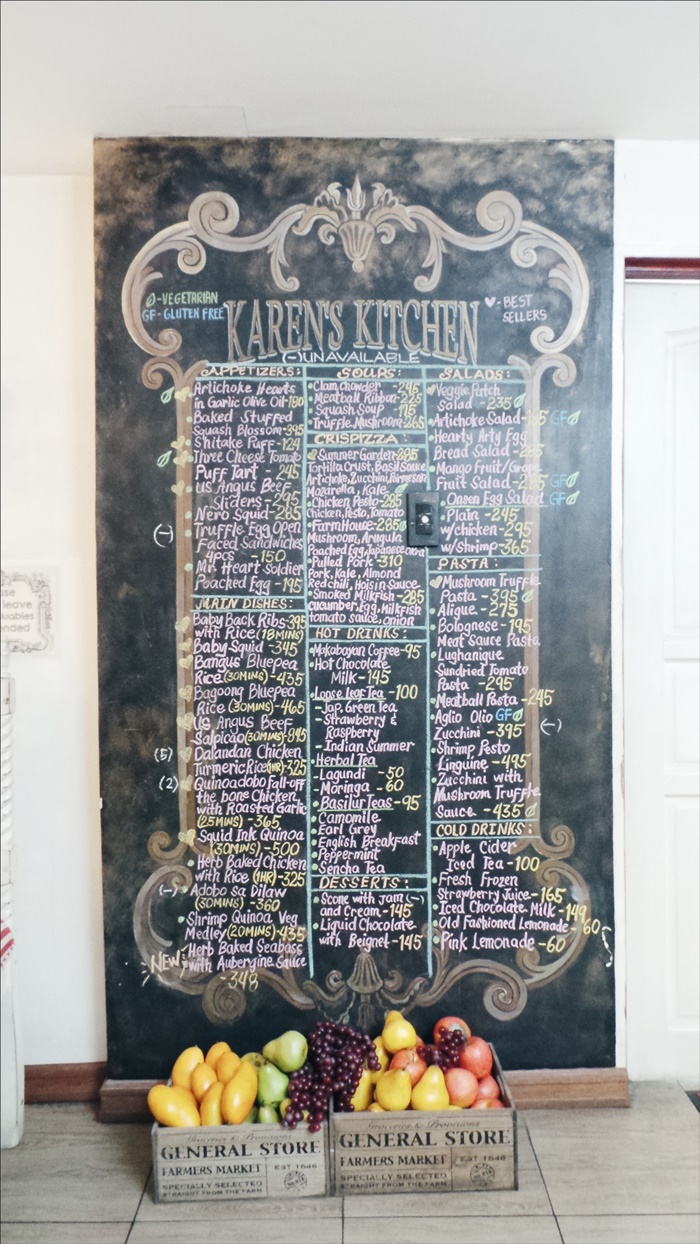 -VEGETARIAN
GF- GLUTEN FREE
KAREN'S KITCHEN
- BEST
SELLERS
(-)UNAVAILABLE
APPETIZERS:
Artichoke Hearts
in Garlic Olive Oil-180
Baked Stuffed
Squash Blossom-395
Shitake Puff-124
Three Cheese Tomato
Puff Tart - 245
US Angus Beef
Sliders-295
Nero Squid-285
(-) Truffle Egg Open
Faced Sandwiches
4pcs -150
Mr. Heart Soldier
Poached Egg -195
MAIN DISHES:
Baby Back Ribs-395
with Rice (18MINS)
Baby Squid -345
Bangus Bluepea
Rice (30MINS)-435
Bagoong Bluepea
Rice (30MINS)-465
US Angus Beef
Salpicao (30MINS)-945
(5) Dalandan Chicken
Turmeric Rice (1HR)-325
(2) Quinoadobo fall-off
the bone Chicken
with Roasted Garlic
(25MINS) -365
Squid Ink Quinoa
(30MINS)-500
Herb Baked Chicken
with Rice (1HR)-325
(-) Adobo sa Dilaw
(30MINS) -360
Shrimp Quinoa Veg
Medley (20MINS)-435
NEW! Herb Baked Seabass
with Aubergine Sauce
-348
SOUPS:
Clam Chowder -245
Meatball Ribbon-225
Squash Soup -115
Truffle Mushroom-265
CRISPIZZA:
Summer Garden-285
Tortilla Crust, Basil Sauce
Artichoke, Zucchini, Parmesan
Mozarella, Kale
Chicken Pesto-285
Chicken, Pesto, Tomato
Farm House-285
Mushroom, Arugula
Poached Egg, Japanese
Pulled Pork -310
Pork, Kale, Almond
Red chili, Hoisin Sauce
Smoked Milkfish-285
cucumber, Egg, Milkfish
tomato sauce, onion
HOT DRINKS:
Makabayan Coffee-95
Hot Chocolate
Milk-145
Loose Leaf Tea -100
-Jap. Green Tea
-Strawberry &
Raspberry
-Indian Summer
Herbal Tea
-Lagundi -50
-Moringa -60
Basilur Teas-95
Camomile
Earl Grey
English Breakfast
Peppermint
Sencha Tea
DESSERTS:
Scone with Jam (-)
and Cream -145
Liquid Chocolate
with Beignet -145
SALADS:
Veggie Patch
Salad -235
Artichoke Salad- GF
Hearty Arty Egg
Bread Salad-285
Mango Fruit/Grape
Fruit Salad -285 GF
Onsen Egg Salad GF
Plain -245
w/chicken -295
w/Shrimp-365
PASTA:
Mushroom Truffle
Pasta -395
Aligue -275
Bolognese -195
Meat Sauce Pasta
Lughanique
Sundried Tomato
Pasta -295
Meatball Pasta -245
Aglio Olio GF
Zucchini -395 (-)
Shrimp Pesto
Linguine -495
Zucchini with
Mushroom Truffle
Sauce -435
COLD DRINKS:
Apple Cider
Iced Tea -100
Fresh Frozen
Strawberry Juice-165
Iced Chocolate Milk -149
Old Fashioned Lemonade -60
Pink Lemonade -60
leave
Groceries & Provisions
GENERAL STORE
FARMERS MARKET EST 1646
SPECIALLY SELECTED
STRAIGHT FROM THE FARM
Groceries & Provisions
GENERAL STORE
FARMERS MARKET EST 1646
SPECIALLY SELECTED
STRAIGHT FROM THE FARM